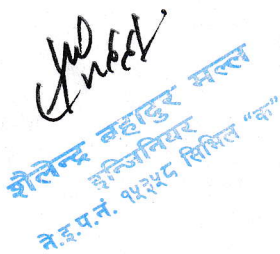 शैलेन्द्र बहादुर मल्ल
इन्जिनियर
ने.इ.प.नं. १५३५८ सिभिल "क"